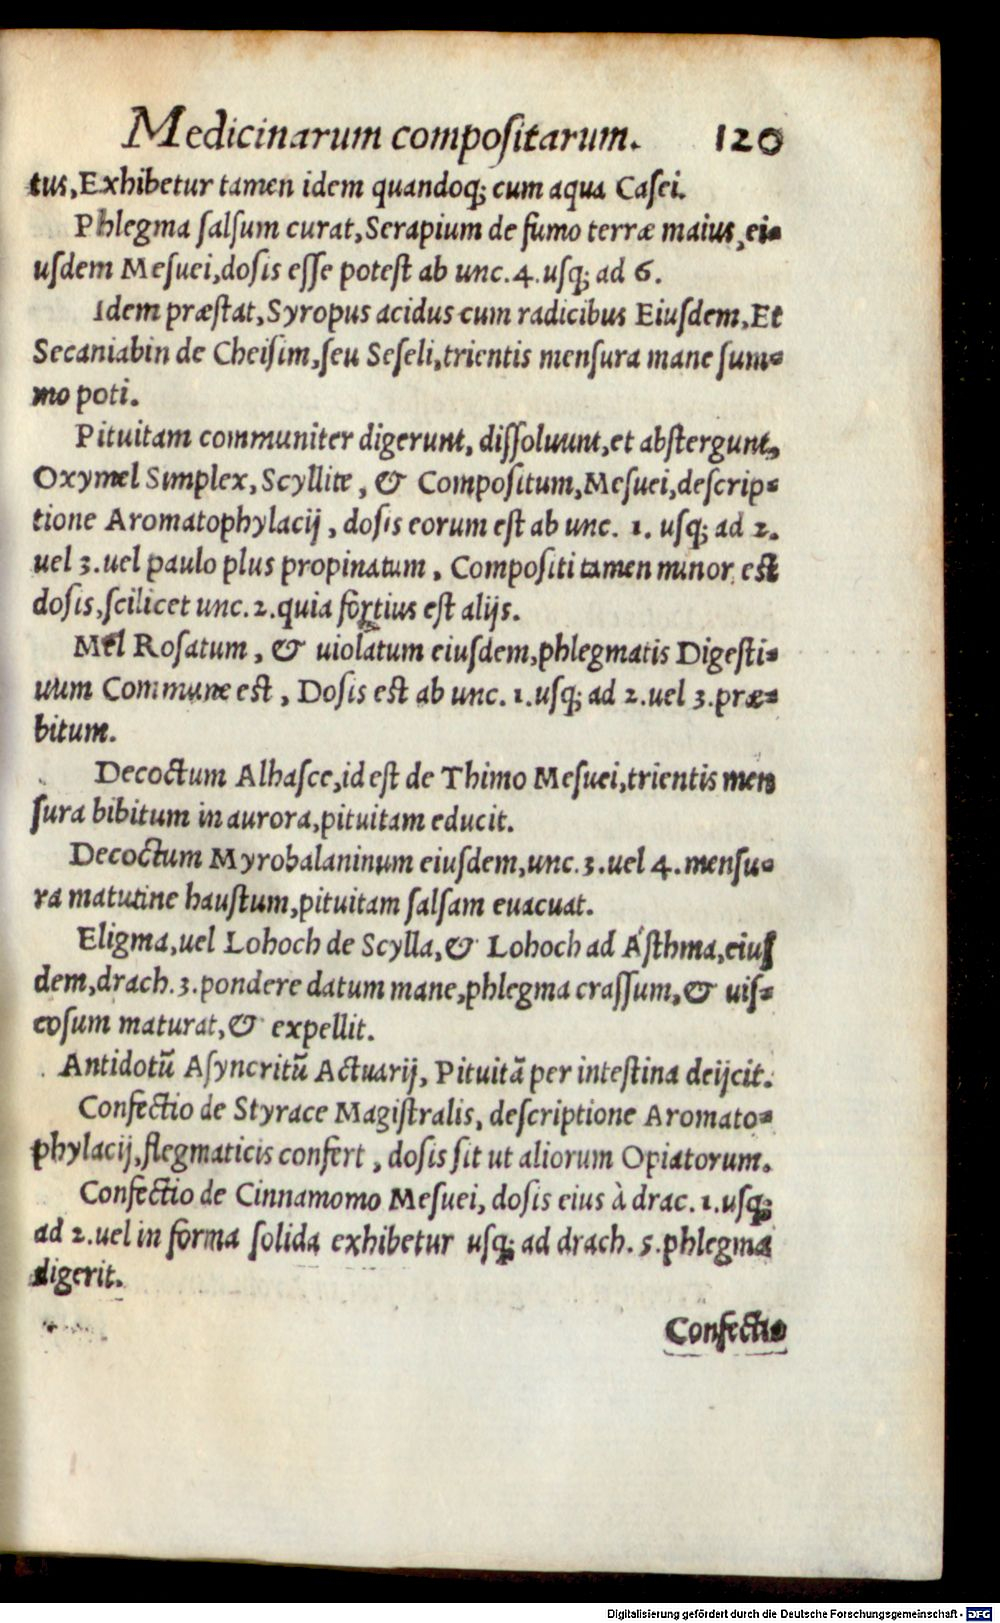 Medicinarum compoſitarum. 120
tus, Exhibetur tamen idem quandoq; cum aqua Caſei.
Phlegma ſalſum curat, Serapium de fumo terræ maius, ei-
uſdem Meſuei, doſis eſſe poteſt ab unc. 4. uſq; ad 6.
Idem præſtat, Syropus acidus cum radicibus Eiuſdem, Et
Secaniabin de Cheiſim, ſeu Seſeli, trientis menſura mane ſum-
mo poti.
Pituitam communiter digerunt, diſſoluunt, et abſtergunt,
Oxymel Simplex, Scyllite, & Compoſitum, Meſuei, deſcrip-
tione Aromatophylacij, doſis eorum eſt ab unc. 1. uſq; ad 2.
uel 3. uel paulo plus propinatum, Compoſiti tamen minor eſt
doſis, ſcilicet unc. 2. quia fortius eſt alijs.
Mel Roſatum, & uiolatum eiuſdem, phlegmatis Digeſti-
uum Commune eſt, Doſis eſt ab unc. 1. uſq; ad 2. uel 3. præ-
bitum.
Decoctum Alhaſce, id eſt de Thimo Meſuei, trientis men
ſura bibitum in aurora, pituitam educit.
Decoctum Myrobalaninum eiuſdem, unc. 3. uel 4. menſu-
ra matutine hauſtum, pituitam ſalſam euacuat.
Eligma, uel Lohoch de Scylla, & Lohoch ad Aſthma, eiuſ
dem, drach. 3. pondere datum mane, phlegma craſſum, & uiſ-
coſum maturat, & expellit.
Antidotũ Aſyncritũ Actuarij, Pituitã per inteſtina deijcit.
Confectio de Styrace Magiſtralis, deſcriptione Aromato-
phylacij, flegmaticis confert, doſis ſit ut aliorum Opiatorum.
Confectio de Cinnamomo Meſuei, doſis eius à drac. 1. uſq;
ad 2. uel in forma ſolida exhibetur uſq; ad drach. 5. phlegma
digerit.
Confectio
Digitalisierung gefördert durch die Deutsche Forschungsgemeinschaft - DFG